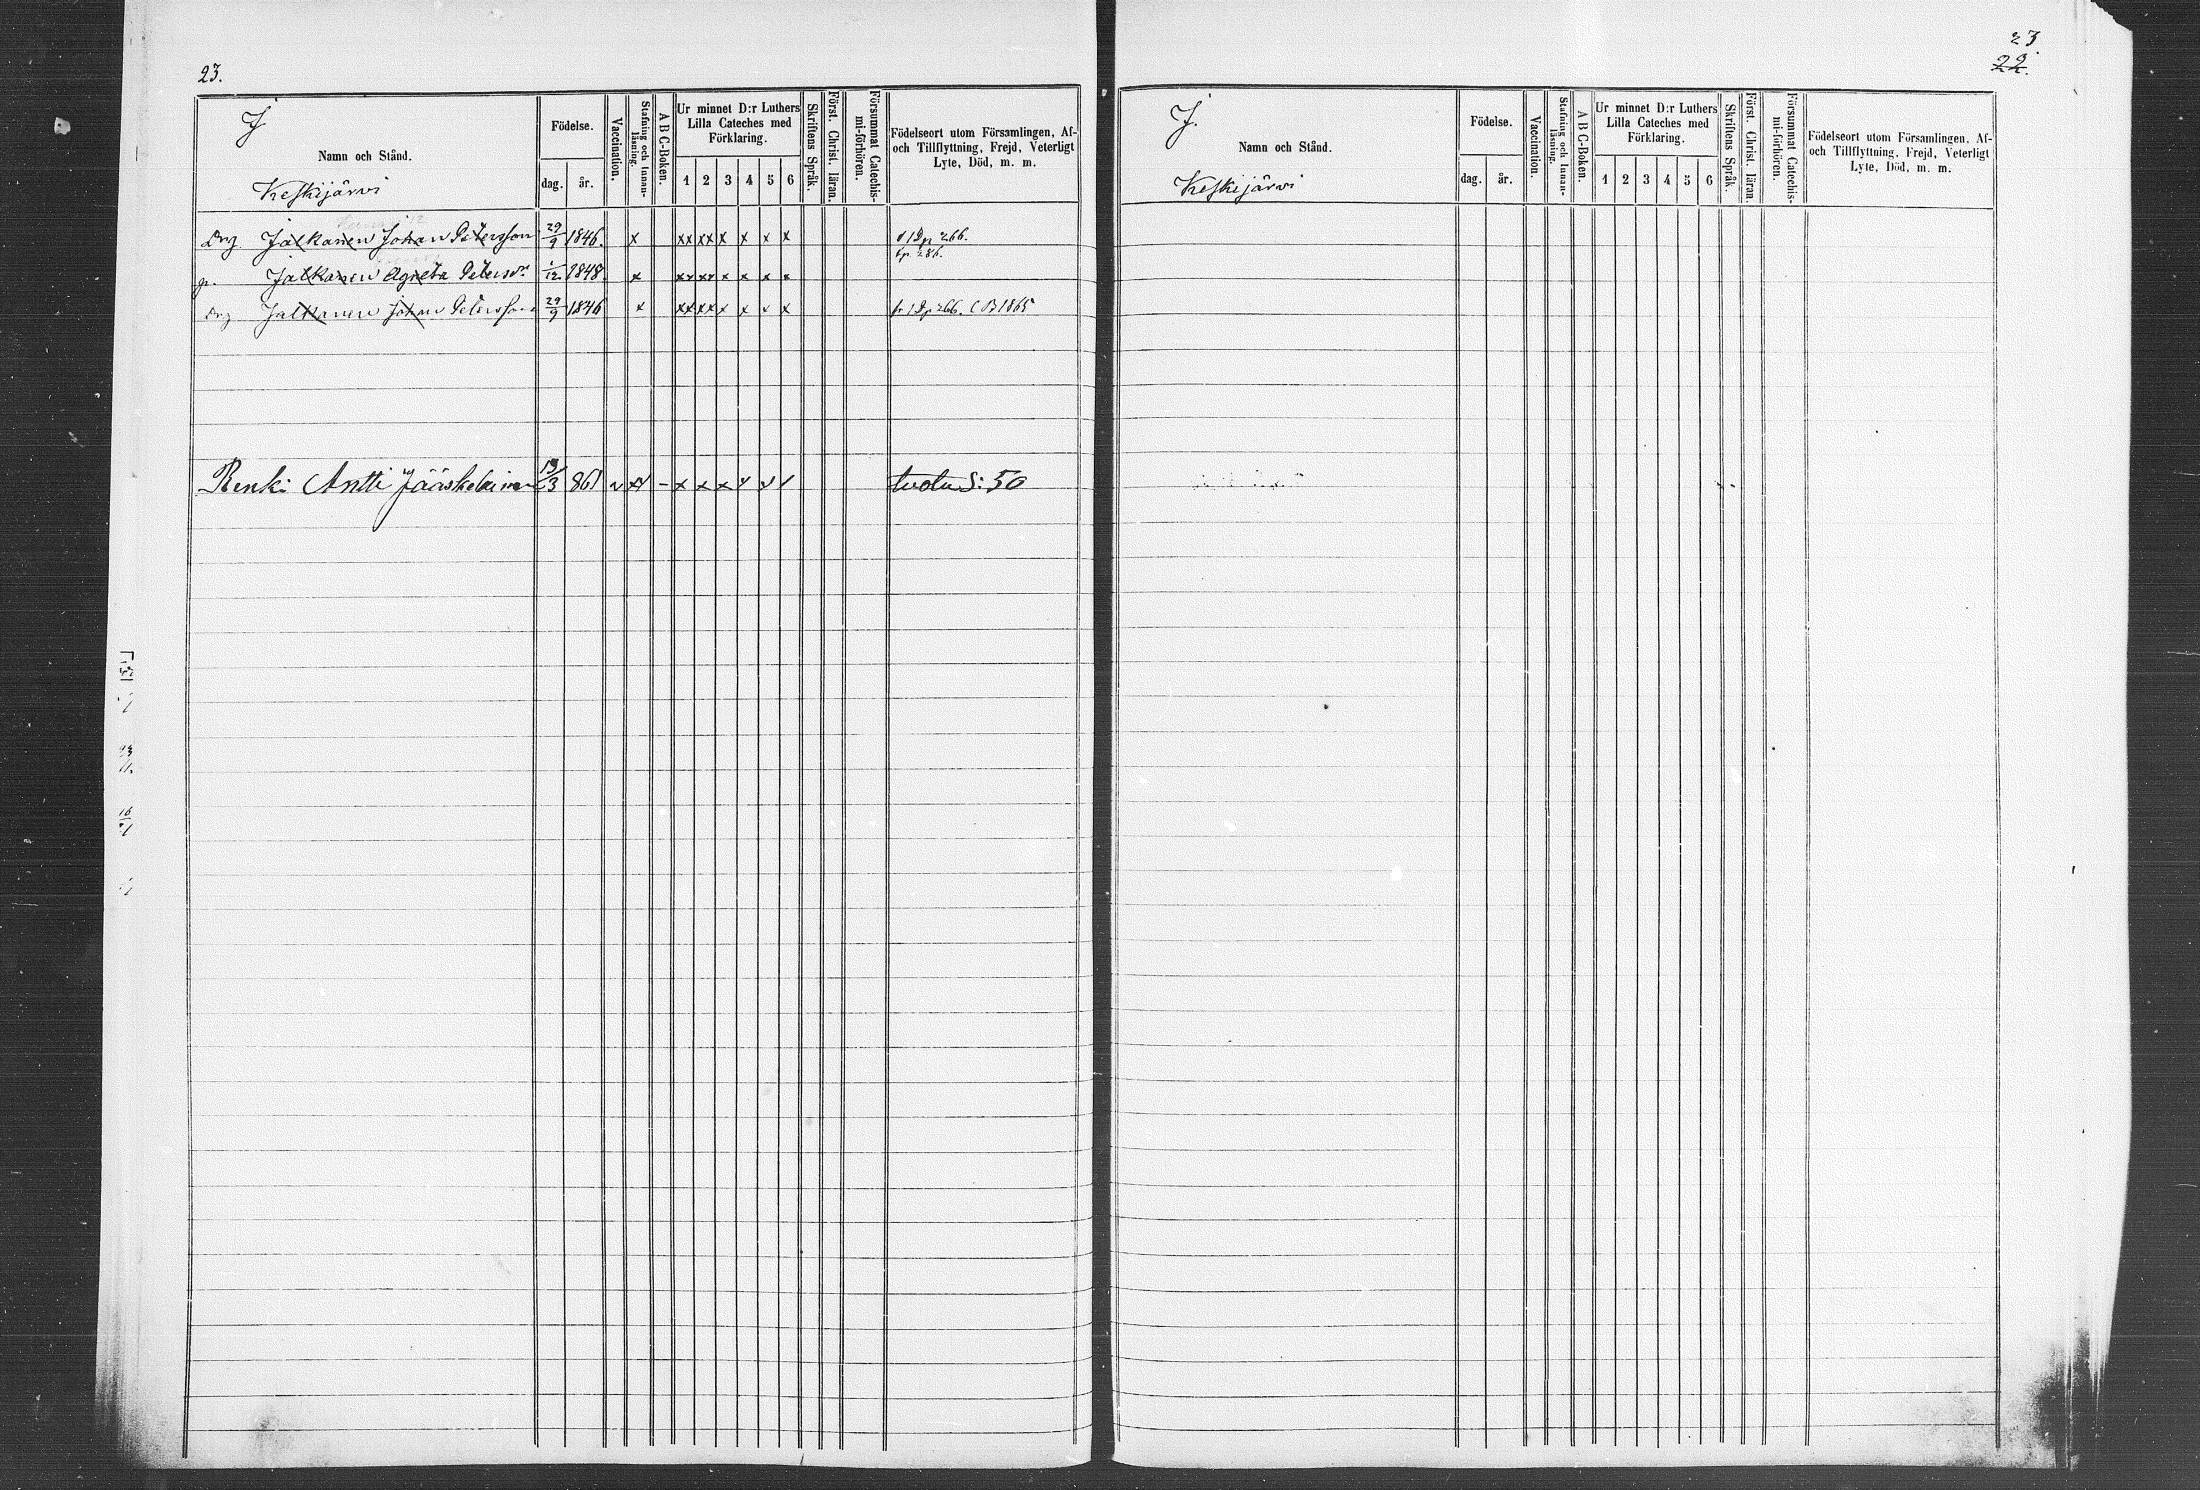 23.
J.
Namn och Stånd.
Keskijärvi
Födelse.
dag. år.
Vaccination.
Stafning och Innan-läsning.
A B C-Boken.
Ur minnet D:r Luthers
Lilla Cateches med
Förklaring.
1 2 3 4 5 6
Skriftens Språk.
Först. Christ. läran.
Försummat Catechis-mi-förhören.
Födelseort utom Församlingen, Af-
och Tillflyttning, Frejd, Veterligt
Lyte, Död, m. m.
Drg Jalkanen Johan Petersson 29/9 1846. x xx xx x x x x
p 286.
Jalkanen Agneta Petersdr 1/12 1848. x xx xx x x x x
Drg Jalkanen Johan Petersson 29/9 1846 x xx xx x x x x p 266. CB 1865
Renki Antti Jääskeläinen 861 tvotus: 50
23.
22.
J.
Namn och Stånd.
Keskijärvi
Födelse.
dag. år.
Vaccination.
Stafning och Innan-läsning.
A B C-Boken.
Ur minnet D:r Luthers
Lilla Cateches med
Förklaring.
1 2 3 4 5 6
Skriftens Språk.
Först. Christ. läran
Försummat Catechis-mi-förhören.
Födelseort utom Församlingen, Af-
och Tillflyttning, Frejd, Veterligt
Lyte, Död, m. m.